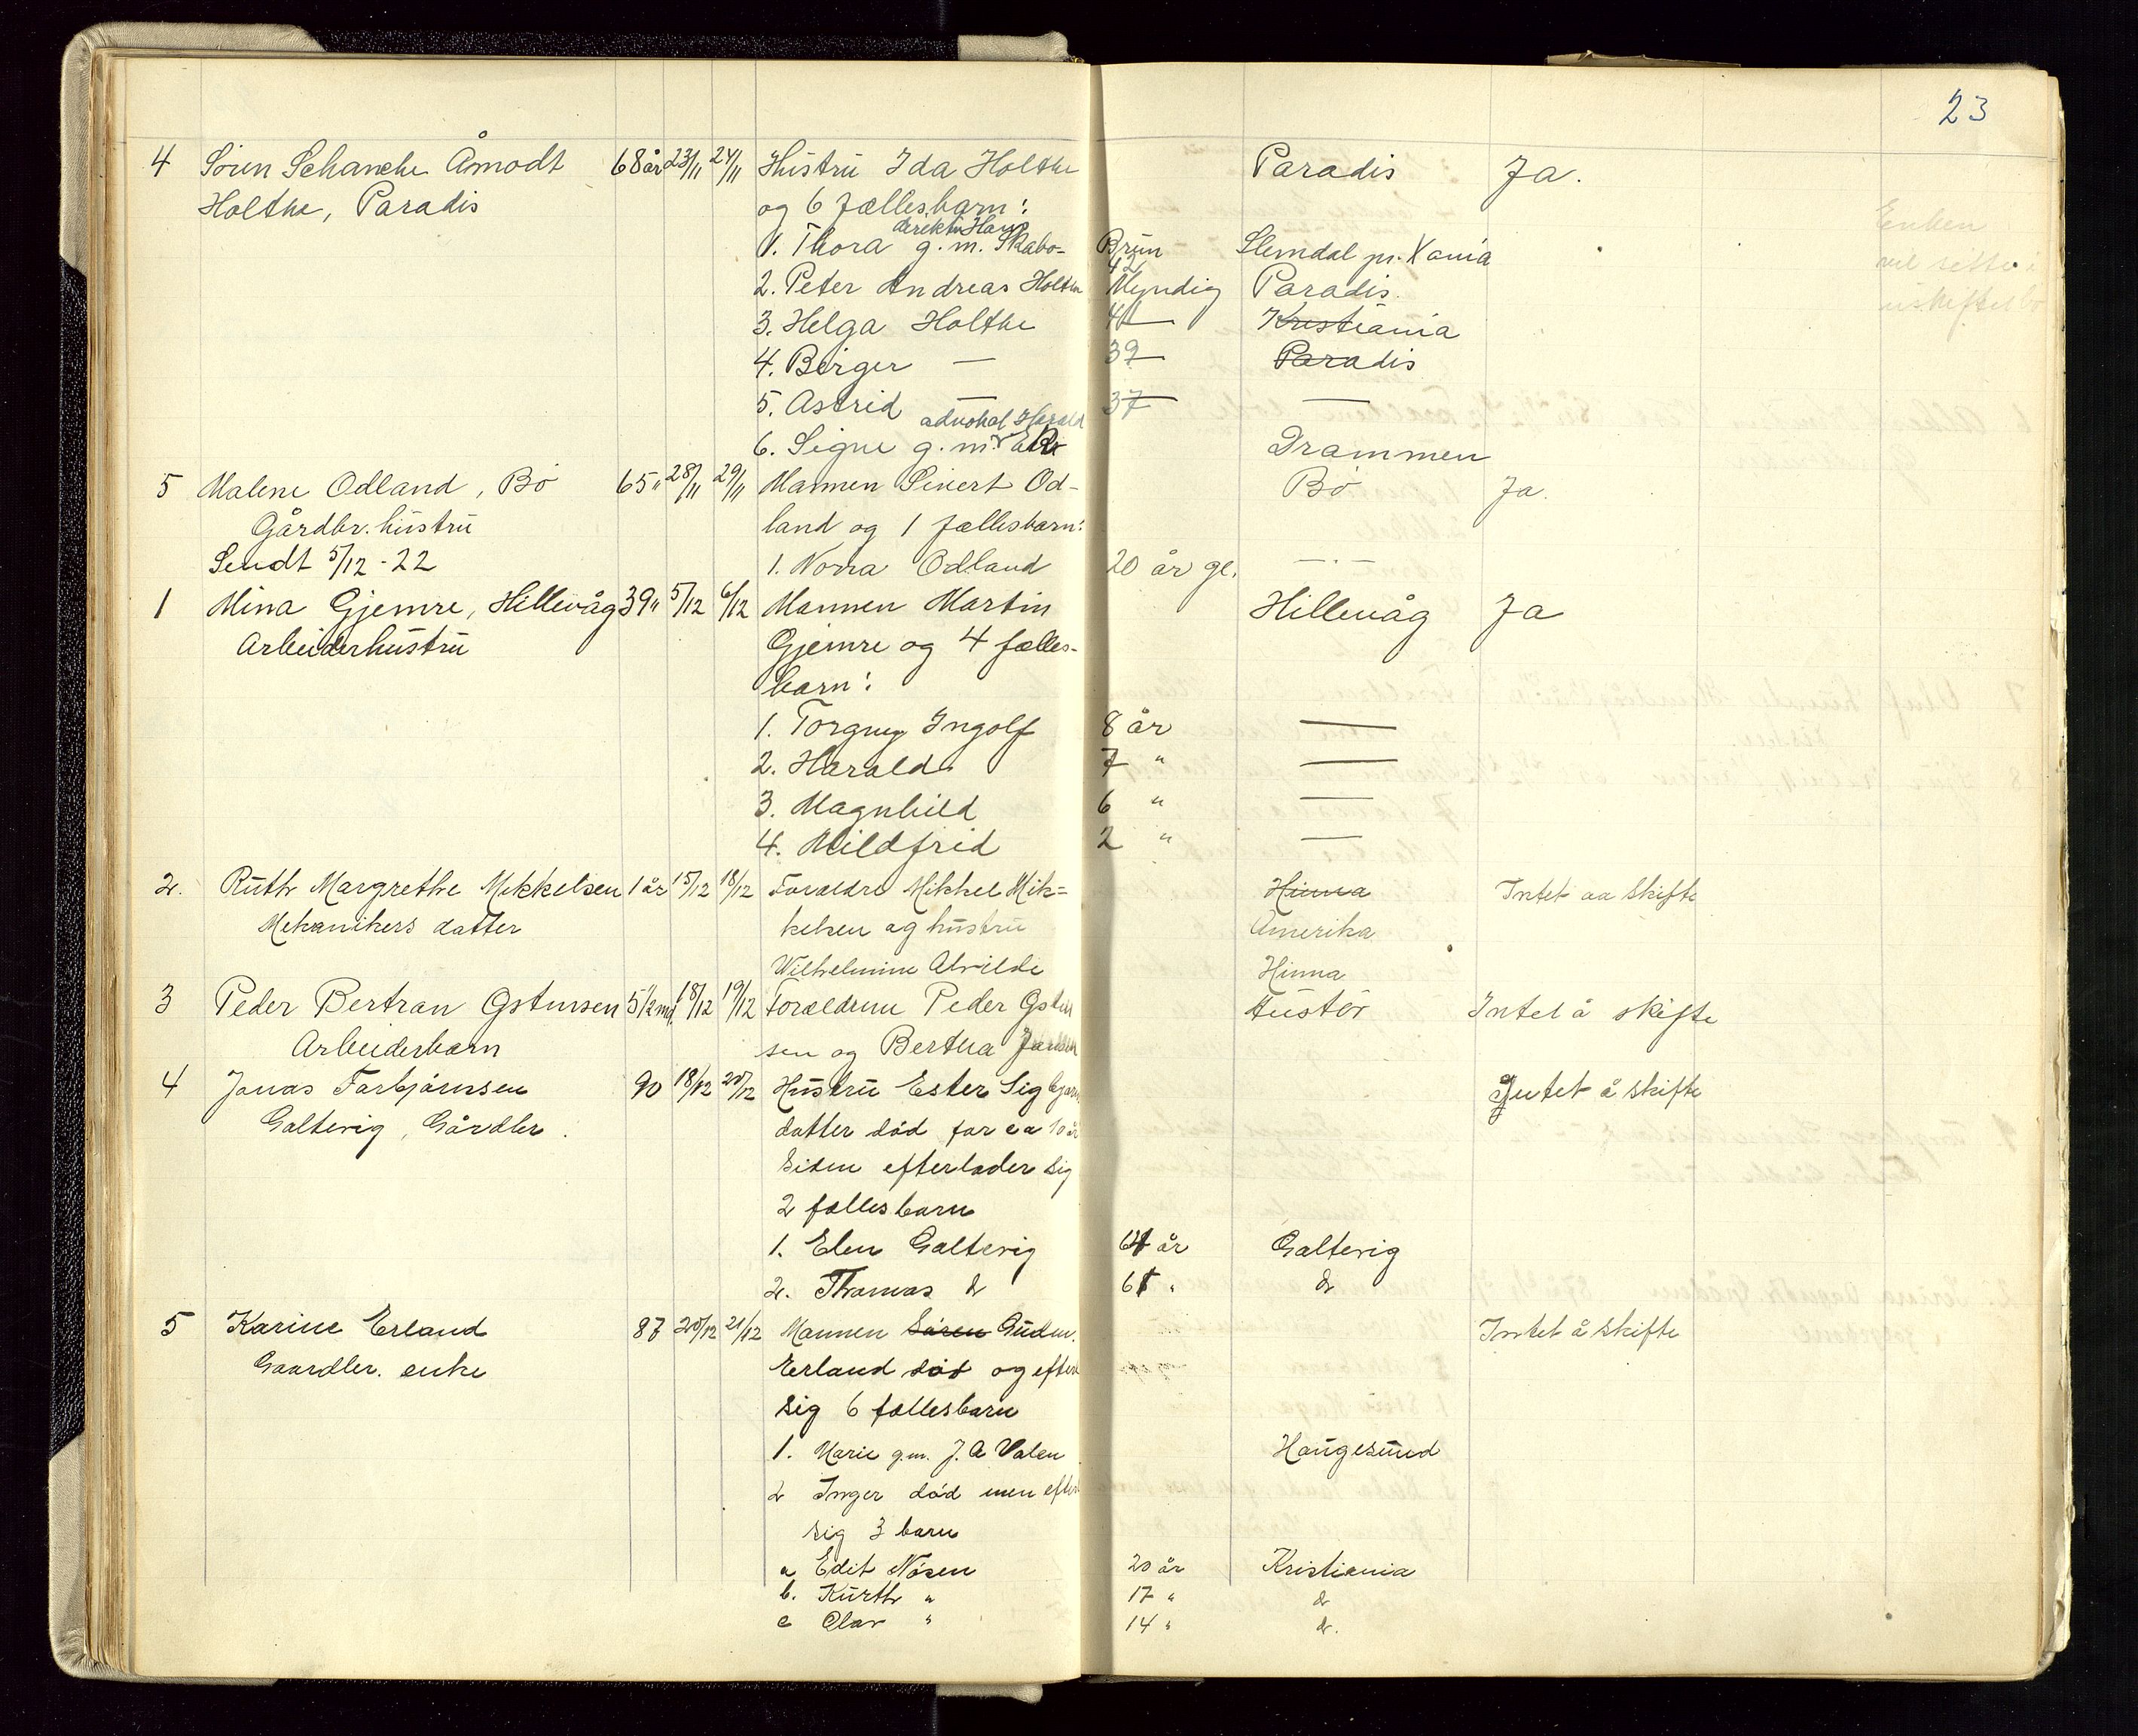 23
4 Sören Schanche Åmodt 68 år 23/11 24/11 Hustru Ida Holthe Paradis Ja.
Holthe, Paradis og 6 fællesbarn: Enken
direktör Hans
1. Thora g.m. Skabo- Brun Slemdal pr. Xania vil sitte i
42
2. Peter Andreas Holthe Myndig Paradis. uskiftet bo
3. Helga Holthe 41 Kristiania
4. Birger — 39 Paradis
5. Astrid — 37 —
advokat Harald
6. Signe g.m. Drammen
5 Malene Odland, Bö 65 " 28/11 29/11 Mannen Sivert Od- Bö Ja.
Gårdbr. hustru land og 1 fællesbarn:
Sendt 5/12 - 22 1. Norra Odland 20 år gl. — · —
1 Mina Gjemre, Hillevåg 39 " 5/12 6/12 Mannen Martin Hillevåg Ja
Arbeiderhustru Gjemre og 4 fælles-
barn:
1. Torgny Ingolf 8 år —
2. Harald 7 " —
3. Magnhild 6 " —
4. Mildfrid 2 " —
2. Ruth Margrethe Mikkelsen 1 år 15/12 18/12 Forældre Mikkel Mik= Hinna Intet aa skifte
Mekanikers datter kelsen og hustru Amerika
Wilhelmine Alvilde Hinna
3 Peder Bertran Gstursen 5 1/2 md. 18/12 19/12 Forældrene Peder Intet å skifte
Arbeiderbarn sen og Bertha
4 Jonas Torbjörnsen 90 18/12 20/12 Hustru Ester Sigbjörns Intet å skifte
Galtevig, Gårdbr. datter död for ca 10 år
siden efterlader sig
2 fælles barn
1. Elen Galtevig 64 år Galtevig
2. Thomas do 61 " do
5 Karine Erland 87 20/12 21/12 Mannen Sören Gudm. Intet å skifte
Gaardbr. enke Erland död og efterl
sig 6 fællesbarn
1. Marie g.m. J. A Valen Haugesund
2 Inger död men efterl
sig 3 barn
a Edit Nösen 20 år Kristiania
b. Kurth " 17 " do
c Olav " 14 " do.